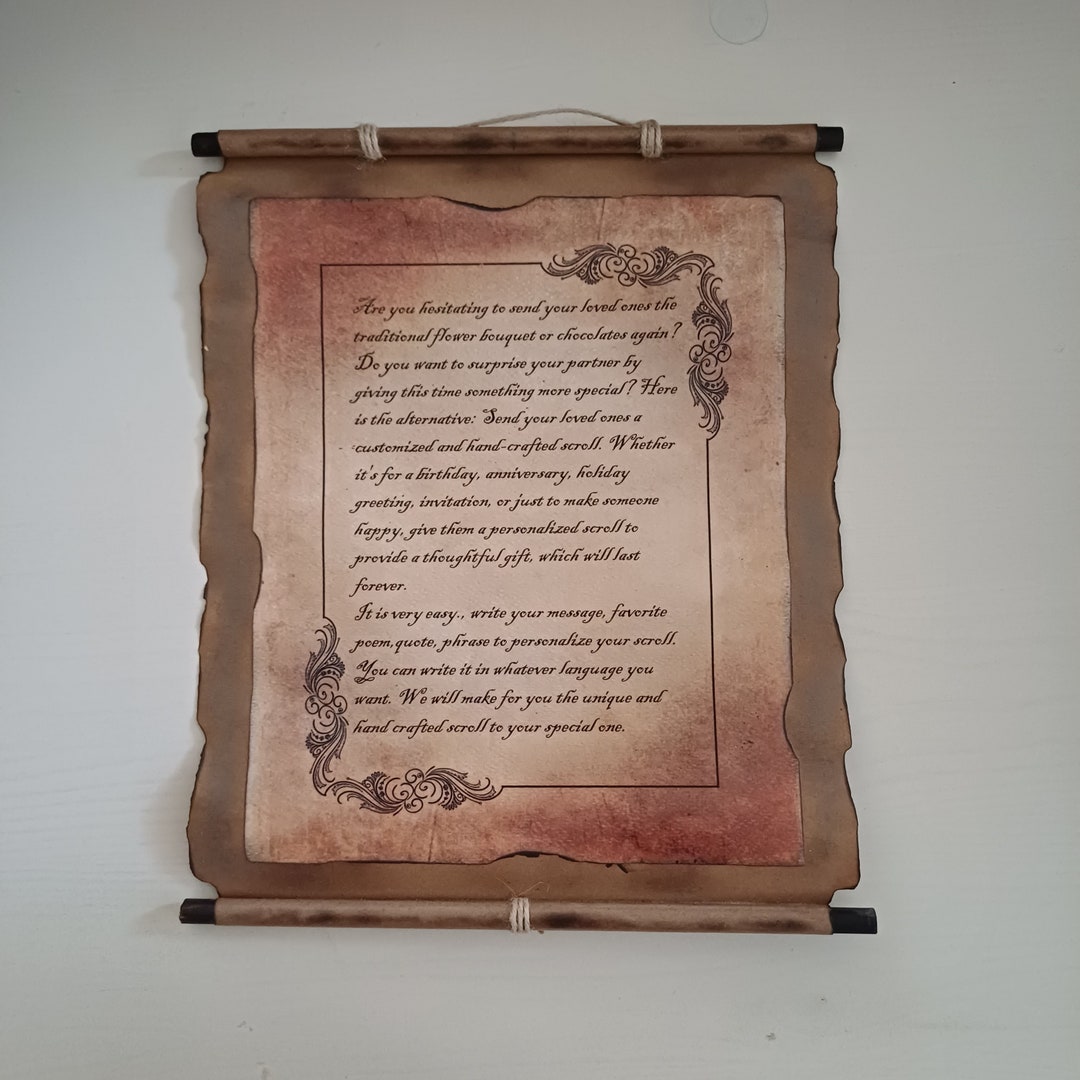 Are you hesitating to send your loved ones the
traditional flower bouquet or chocolates again?
Do you want to surprise your partner by
giving this time something more special? Here
is the alternative: Send your loved ones a
customized and hand-crafted scroll. Whether
it's for a birthday, anniversary, holiday
greeting, invitation, or just to make someone
happy, give them a personalized scroll to
provide a thoughtful gift, which will last
forever.
It is very easy., write your message, favorite
poem,quote, phrase to personalize your scroll.
You can write it in whatever language you
want. We will make for you the unique and
hand crafted scroll to your special one.